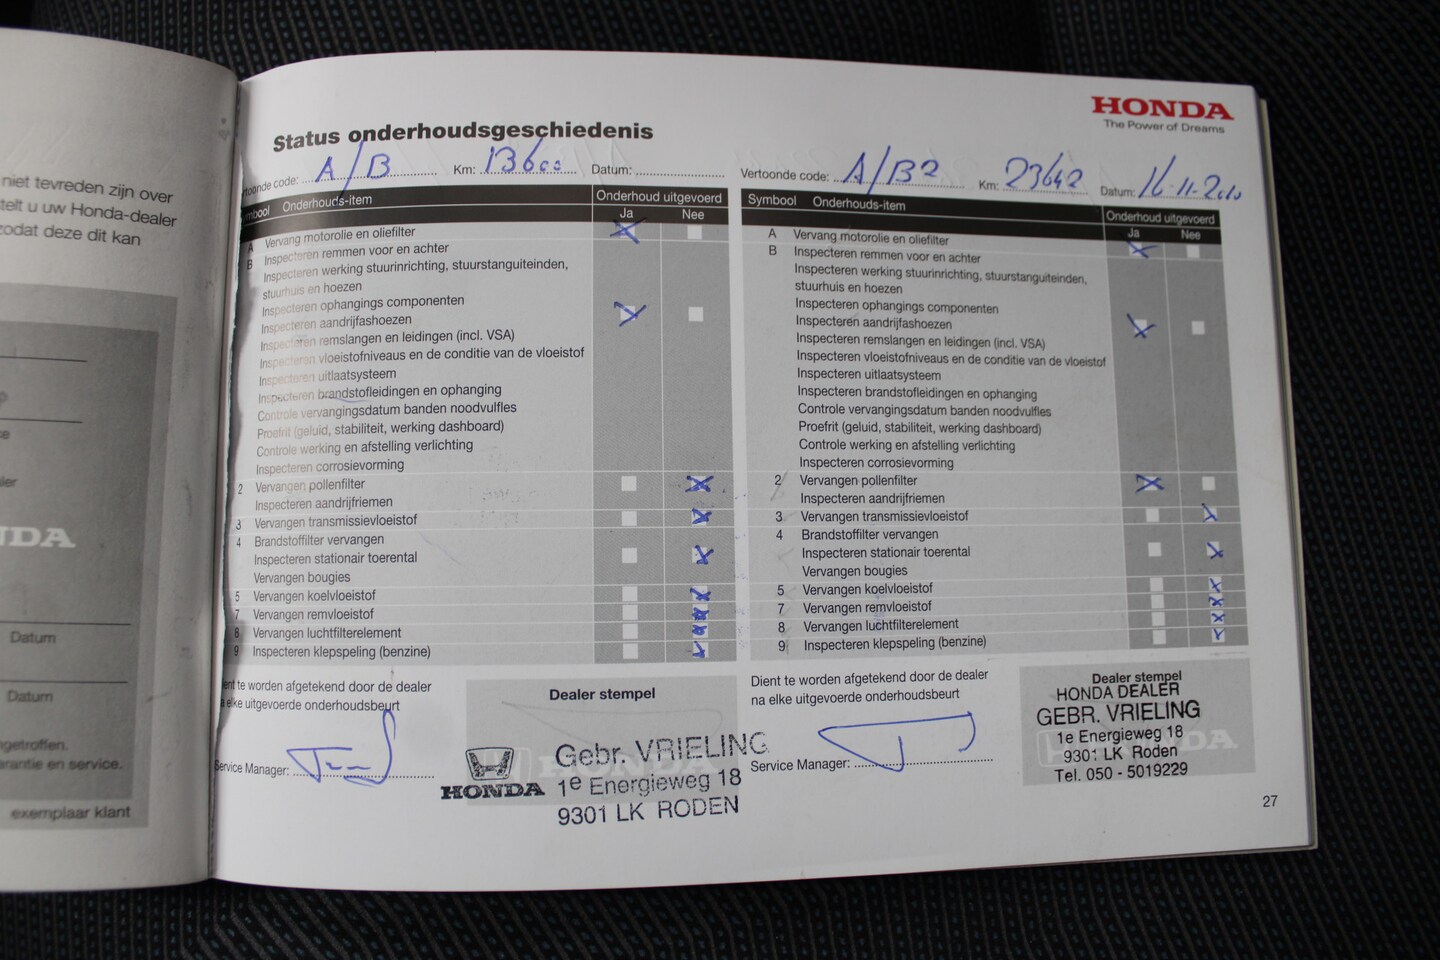 niet tevreden zijn over
telt u uw Honda-dealer
zodat deze dit kan
NDA
Datum
Datum
ngetroffen.
arantie en service.
exemplaar klant
HONDA
The Power of Dreams
Status onderhoudsgeschiedenis
ertoonde code: A/B Km: 13600 Datum:
mbool Onderhouds-item Onderhoud uitgevoerd
Ja Nee
A Vervang motorolie en oliefilter
B Inspecteren remmen voor en achter
Inspecteren werking stuurinrichting, stuurstanguiteinden,
stuurhuis en hoezen
Inspecteren ophangings componenten
Inspecteren aandrijfashoezen
Inspecteren remslangen en leidingen (incl. VSA)
Inspecteren vloeistofniveaus en de conditie van de vloeistof
Inspecteren uitlaatsysteem
Inspecteren brandstofleidingen en ophanging
Controle vervangingsdatum banden noodvulfles
Proefrit (geluid, stabiliteit, werking dashboard)
Controle werking en afstelling verlichting
Inspecteren corrosievorming
2 Vervangen pollenfilter
Inspecteren aandrijfriemen
3 Vervangen transmissievloeistof
4 Brandstoffilter vervangen
Inspecteren stationair toerental
Vervangen bougies
5 Vervangen koelvloeistof
7 Vervangen remvloeistof
8 Vervangen luchtfilterelement
9 Inspecteren klepspeling (benzine)
ient te worden afgetekend door de dealer
a elke uitgevoerde onderhoudsbeurt
Service Manager:
Dealer stempel
HONDA
Gebr. VRIELING
1e Energieweg 18
9301 LK RODEN
Vertoonde code: A/B2 Km: 23642 Datum: 16-11-2010
Symbool Onderhouds-item Onderhoud uitgevoerd
Ja Nee
A Vervang motorolie en oliefilter
B Inspecteren remmen voor en achter
Inspecteren werking stuurinrichting, stuurstanguiteinden,
stuurhuis en hoezen
Inspecteren ophangings componenten
Inspecteren aandrijfashoezen
Inspecteren remslangen en leidingen (incl. VSA)
Inspecteren vloeistofniveaus en de conditie van de vloeistof
Inspecteren uitlaatsysteem
Inspecteren brandstofleidingen en ophanging
Controle vervangingsdatum banden noodvulfles
Proefrit (geluid, stabiliteit, werking dashboard)
Controle werking en afstelling verlichting
Inspecteren corrosievorming
2 Vervangen pollenfilter
Inspecteren aandrijfriemen
3 Vervangen transmissievloeistof
4 Brandstoffilter vervangen
Inspecteren stationair toerental
Vervangen bougies
5 Vervangen koelvloeistof
7 Vervangen remvloeistof
8 Vervangen luchtfilterelement
9 Inspecteren klepspeling (benzine)
Dient te worden afgetekend door de dealer
na elke uitgevoerde onderhoudsbeurt
Service Manager:
Dealer stempel
HONDA DEALER
GEBR. VRIELING
1e Energieweg 18
9301 LK Roden
Tel. 050 - 5019229
27